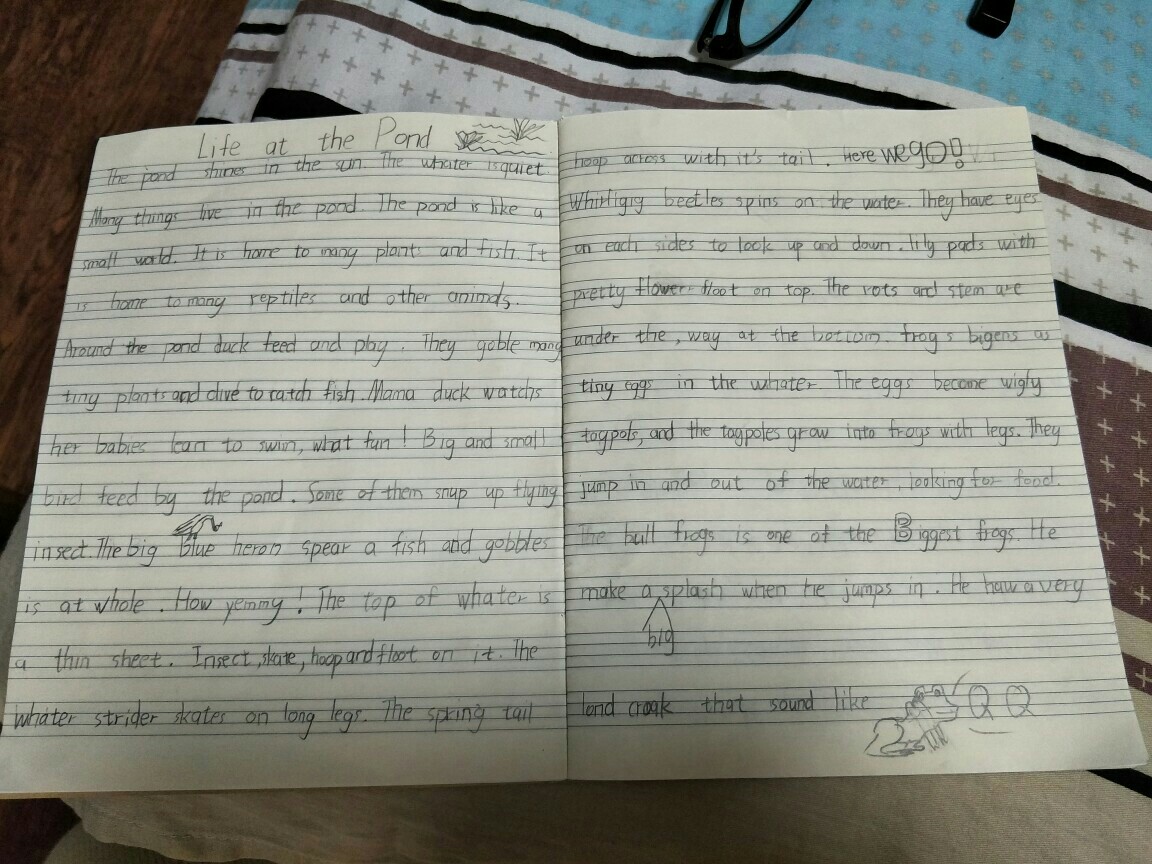 Life at the Pond
The pond shines in the sun. The whater is quiet.
Many things live in the pond. The pond is like a
small world. It is home to many plants and fish. It
is home to many reptiles and other animals.
Around the pond duck feed and play. They goble many
tiny plants and dive to catch fish. Mama duck watchs
her babies lean to swim, what fun! Big and small
bird feed by the pond. Some of them snup up flying
insect. The big Blue heron spear a fish and gobbles
is at whole. How yemmy! The top of whater is
a thin sheet. Insect, skate, hoop and floot on it. The
whater strider skates on long legs. The spring tail
hoop across with it's tail. Here we gO!
Whirligig beetles spins on the water. They have eyes
on each sides to look up and down. lily pads with
pretty flower floot on top. The rots and stem are
under the, way at the bottom. frogs bigens as
tiny eggs in the whater. The eggs become wigly
tagpols, and the tagpoles grow into frogs with legs. They
jump in and out of the water, looking for food.
The bull frogs is one of the Biggest frogs. He
make a splash when he jumps in. He haw a very
big
lond croak that sound like
Q Q